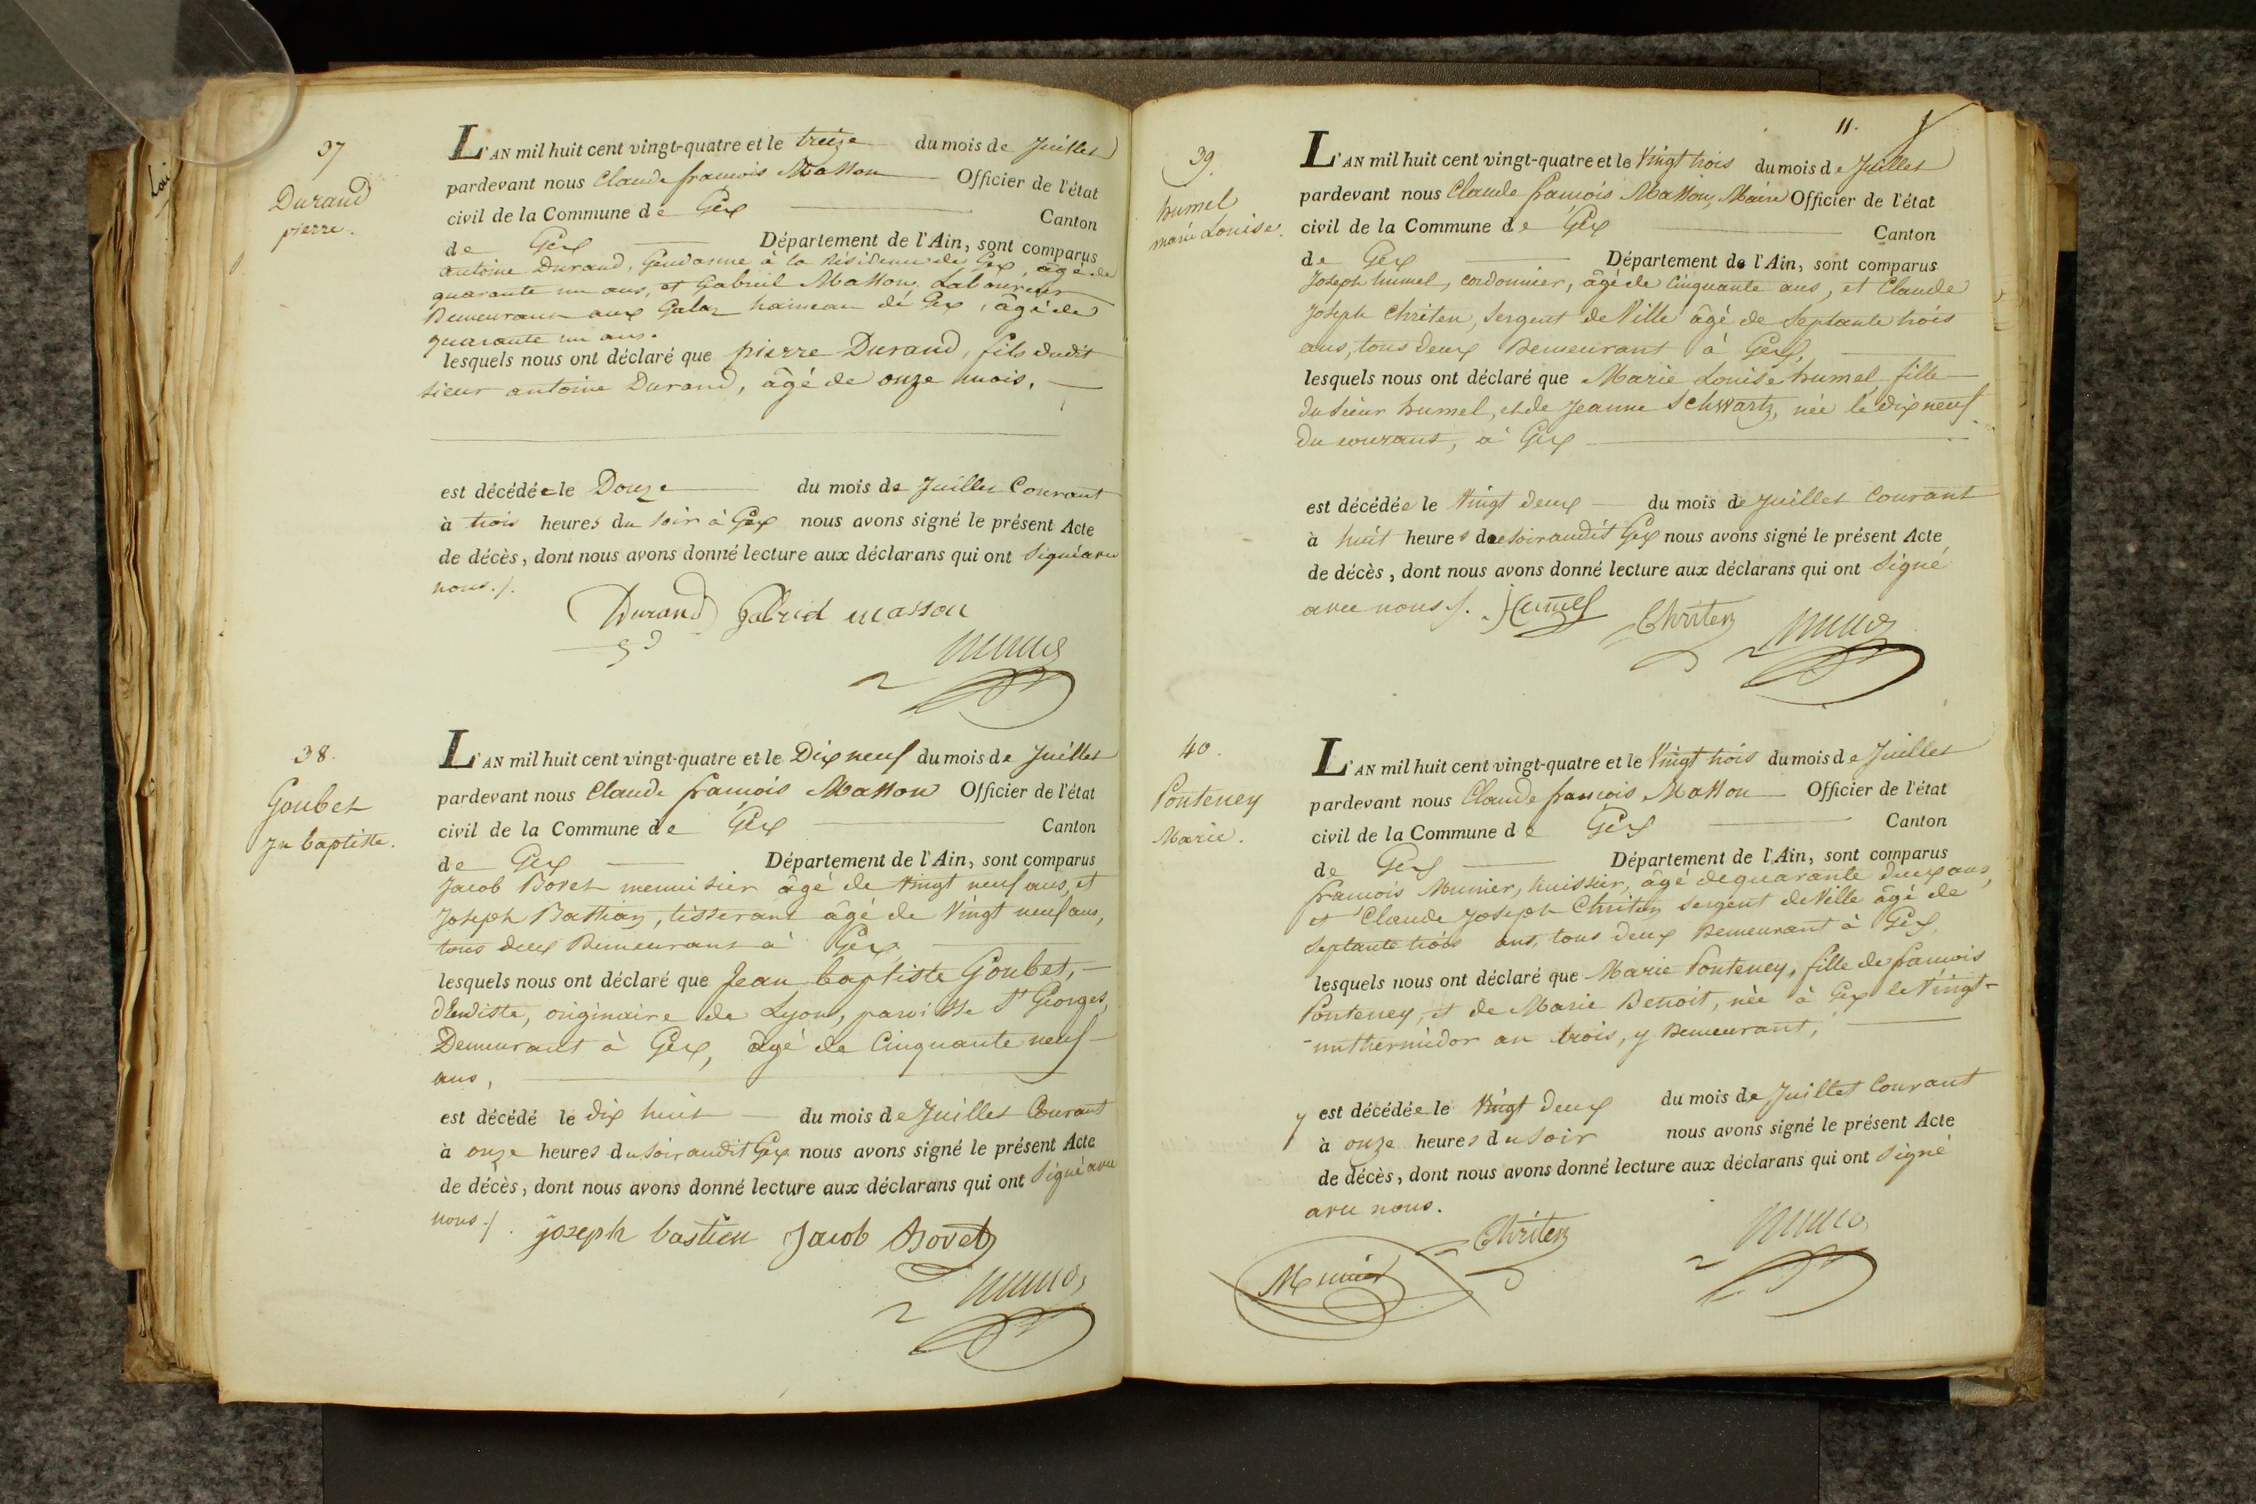 37
Durand
pierre.
L'AN mil huit cent vingt-quatre et le treize du mois de Juillet
pardevant nous Claude francois Masson Officier de l'état
civil de la Commune de Gex Canton
de Gex Département de l'Ain, sont comparus
antoine Durand, Gendarme à la Résidence de Gex, âgé de
quarante un ans, et Gabriel Masson, Laboureur
Demeurant aux Galas hameau de Gex, âgé de
quarante un ans.
lesquels nous ont déclaré que pierre Durand, fils dudit
sieur antoine Durand, âgé de onze mois,
est décédée le Douze du mois de Juillet Courant
à trois heures du soir à Gex nous avons signé le présent Acte
de décès, dont nous avons donné lecture aux déclarans qui ont signé avec
nous./.
Durand Gabriel masson
38.
Goubet
Jn baptiste.
L'AN mil huit cent vingt-quatre et le Dix neuf du mois de Juillet
pardevant nous Claude francois Masson Officier de l'état
civil de la Commune de Gex Canton
de Gex Département de l'Ain, sont comparus
Jacob Bovet menuisier âgé de vingt neuf ans, et
Joseph Bastian, tisserant âgé de Vingt neuf ans,
tous deux Demeurant à Gex
lesquels nous ont déclaré que Jean baptiste Goubet,
originaire de Lyon, paroisse St Georges,
Demeurant à Gex, âgé de Cinquante neuf
ans,
est décédé le dix huit du mois de Juillet Courant
à onze heures du soir audit Gex nous avons signé le présent Acte
de décès, dont nous avons donné lecture aux déclarans qui ont signé avec
nous./.
joseph bastien Jacob Bovet
11.
39.
humel
marie Louise.
L'AN mil huit cent vingt-quatre et le Vingt trois du mois de Juillet
pardevant nous Claude francois Masson, Maire Officier de l'état
civil de la Commune de Gex Canton
de Gex Département de l'Ain, sont comparus
Joseph humel, cordonnier, âgé de Cinquante ans, et Claude
Joseph Chriten, Sergent de Ville âgé de Septante trois
ans, tous deux Demeurant à Gex,
lesquels nous ont déclaré que Marie Louise humel fille
du Sieur humel, et de Jeanne Schwartz, née le dix neuf
du courant, à Gex
est décédée le Vingt deux du mois de Juillet Courant
à huit heures du soir audit Gex nous avons signé le présent Acte
de décès, dont nous avons donné lecture aux déclarans qui ont Signé
avec nous./. Humel Chriten
40.
Ponteney
Marie.
L'AN mil huit cent vingt-quatre et le Vingt trois du mois de Juillet
pardevant nous Claude francois Masson Officier de l'état
civil de la Commune de Gex Canton
de Gex Département de l'Ain, sont comparus
francois Munier, huissier, âgé de quarante deux ans,
et Claude Joseph Chriten sergent de Ville âgé de
Septante trois ans, tous deux Demeurant à Gex,
lesquels nous ont déclaré que Marie Ponteney, fille de francois
Ponteney, et de Marie Benoit, née à Gex le Vingt-
un thermidor an trois, y Demeurant,
y est décédée le Vingt deux du mois de Juillet Courant
à onze heures du soir nous avons signé le présent Acte
de décès, dont nous avons donné lecture aux déclarans qui ont Signé
avec nous.
Munier Chriten